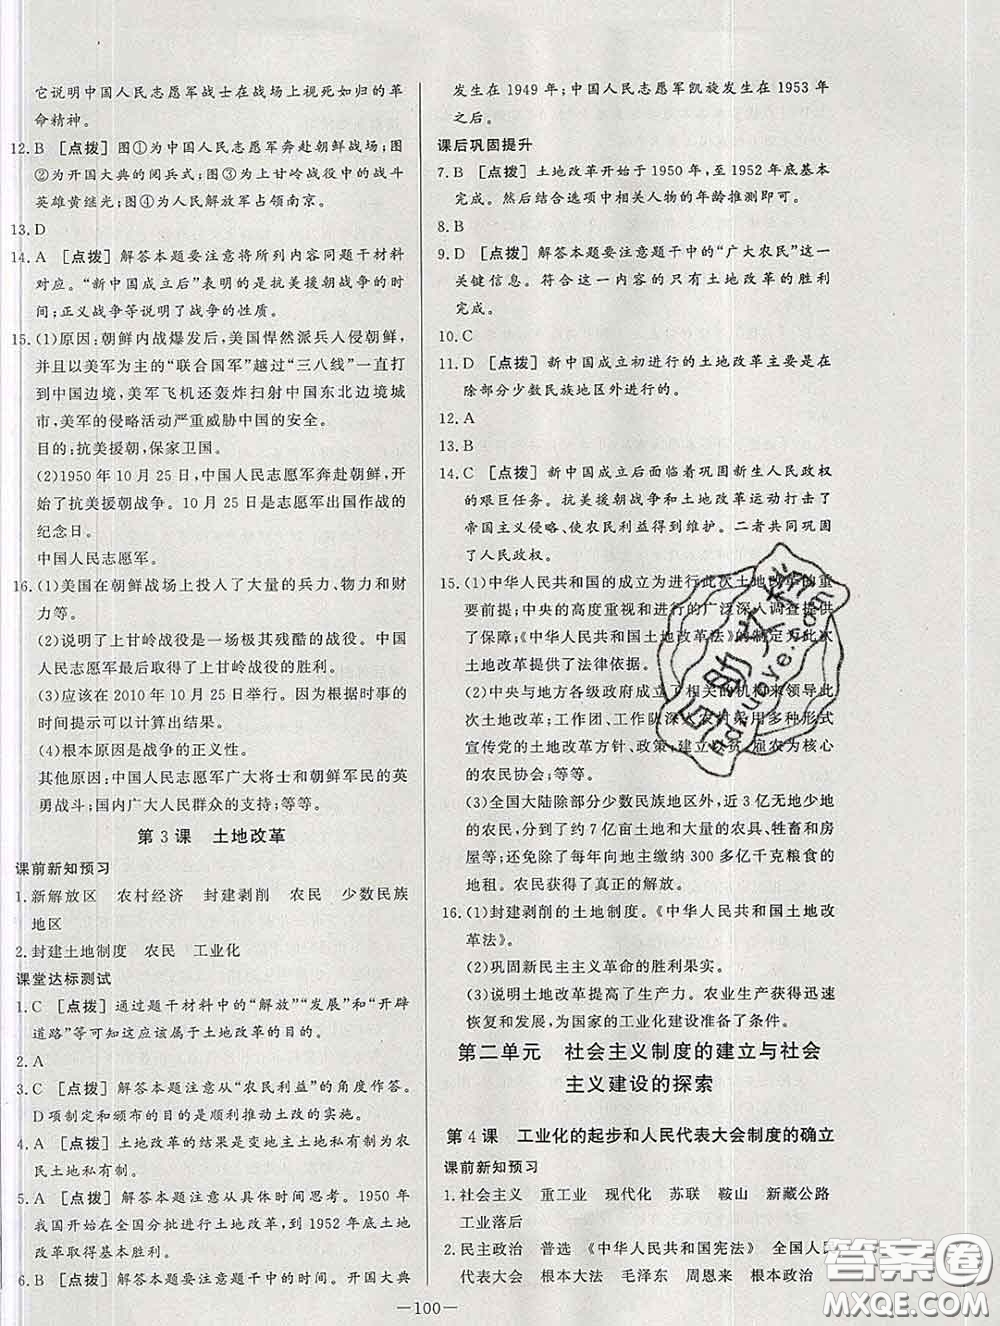 它说明中国人民志愿军战士在战场上视死如归的革
命精神。
12. B [点拨] 图①为中国人民志愿军奔赴朝鲜战场；图
②为开国大典的阅兵式；图③为上甘岭战役中的战斗
英雄黄继光；图④为人民解放军占领南京。
13. D
14. A [点拨] 解答本题要注意将所列内容同题干材料
对应。“新中国成立后”表明的是抗美援朝战争的时
间；正义战争等说明了战争的性质。
15. (1)原因：朝鲜内战爆发后，美国悍然派兵入侵朝鲜，
并且以美军为主的“联合国军”越过“三八线”一直打
到中国边境，美军飞机还轰炸扫射中国东北边境城
市，美军的侵略活动严重威胁中国的安全。
目的：抗美援朝，保家卫国。
(2)1950 年 10 月 25 日，中国人民志愿军奔赴朝鲜，开
始了抗美援朝战争。10 月 25 日是志愿军出国作战的
纪念日。
中国人民志愿军。
16. (1)美国在朝鲜战场上投入了大量的兵力、物力和财
力等。
(2)说明了上甘岭战役是一场极其残酷的战役。中国
人民志愿军最后取得了上甘岭战役的胜利。
(3)应该在 2010 年 10 月 25 日举行。因为根据时事的
时间提示可以计算出结果。
(4)根本原因是战争的正义性。
其他原因：中国人民志愿军广大将士和朝鲜军民的英
勇战斗；国内广大人民群众的支持；等等。
第 3 课 土地改革
课前新知预习
1. 新解放区 农村经济 封建剥削 农民 少数民族
地区
2. 封建土地制度 农民 工业化
课堂达标测试
1. C [点拨] 通过题干材料中的“解放”“发展”和“开辟
道路”等可知这应该属于土地改革的目的。
2. A
3. C [点拨] 解答本题注意从“农民利益”的角度作答。
D项制定和颁布的目的是顺利推动土改的实施。
4. A [点拨] 土地改革的结果是变地主土地私有制为农
民土地私有制。
5. A [点拨] 解答本题注意从具体时间思考。1950 年
我国开始在全国分批进行土地改革，到 1952 年底土地
改革取得基本胜利。
6. B [点拨] 解答本题要注意题干中的时间。开国大典
发生在 1949 年；中国人民志愿军凯旋发生在 1953 年
之后。
课后巩固提升
7. B [点拨] 土地改革开始于 1950 年，至 1952 年底基本
完成。然后结合选项中相关人物的年龄推测即可。
8. B
9. D [点拨] 解答本题要注意题干中的“广大农民”这一
关键信息。符合这一内容的只有土地改革的胜利
完成。
10. C
11. D [点拨] 新中国成立初进行的土地改革主要是在
除部分少数民族地区外进行的。
12. A
13. B
14. C [点拨] 新中国成立后面临着巩固新生人民政权
的艰巨任务。抗美援朝战争和土地改革运动打击了
帝国主义侵略、使农民利益得到维护。二者共同巩固
了人民政权。
15. (1)中华人民共和国的成立为进行此次土地改革的重
要前提；中央的高度重视和进行的广泛深入调查提供
了保障；《中华人民共和国土地改革法》的制定为此次
土地改革提供了法律依据。
(2)中央与地方各级政府成立了相关的机构来领导此
次土地改革；工作团、工作队深入农村采用多种形式
宣传党的土地改革方针、政策；建立以贫、雇农为核心
的农民协会；等等。
(3)全国大陆除部分少数民族地区外，近 3 亿无地少地
的农民，分到了约 7 亿亩土地和大量的农具、牲畜和房
屋等；还免除了每年向地主缴纳 300 多亿千克粮食的
地租。农民获得了真正的解放。
16. (1)封建剥削的土地制度。《中华人民共和国土地改
革法》。
(2)巩固新民主主义革命的胜利果实。
(3)说明土地改革提高了生产力。农业生产获得迅速
恢复和发展，为国家的工业化建设准备了条件。
第二单元 社会主义制度的建立与社会
主义建设的探索
第 4 课 工业化的起步和人民代表大会制度的确立
课前新知预习
1. 社会主义 重工业 现代化 苏联 鞍山 新藏公路
工业落后
2. 民主政治 普选 《中华人民共和国宪法》 全国人民
代表大会 根本大法 毛泽东 周恩来 根本政治
—100—
答案圈
MXQE.COM